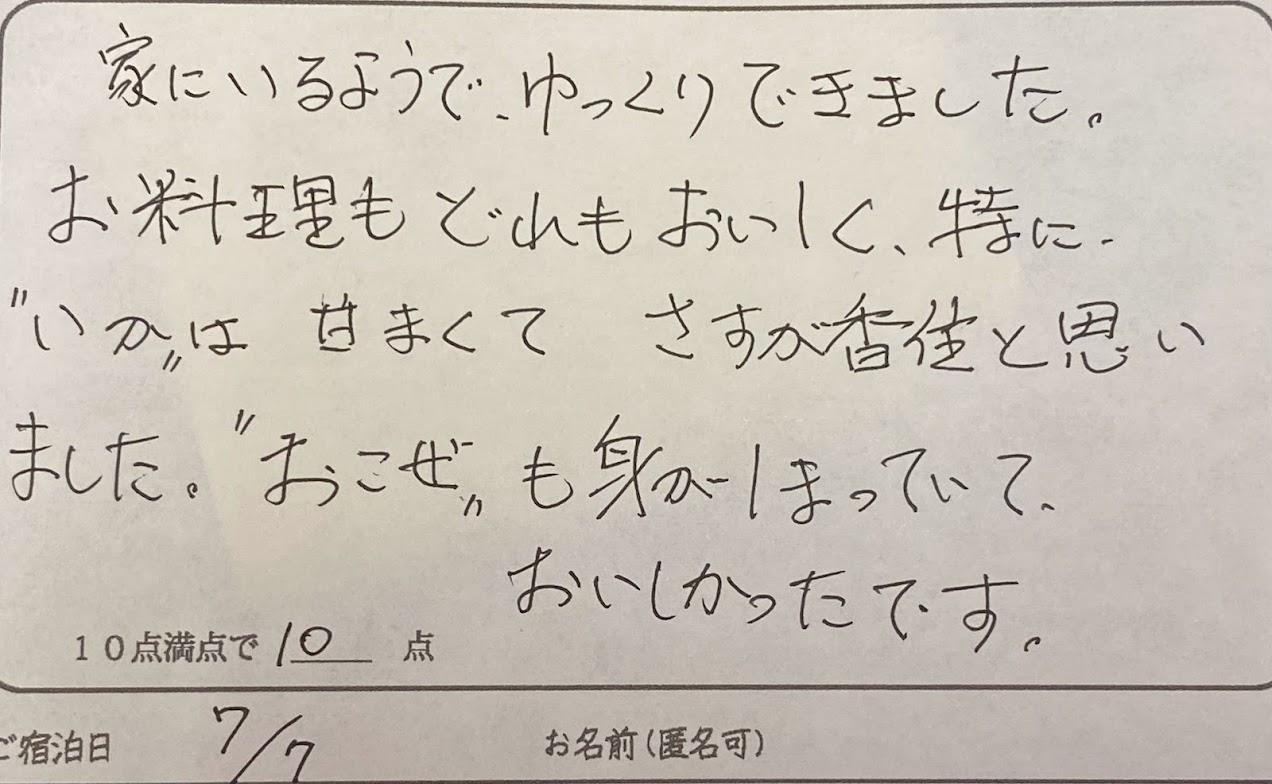 家にいるようで、ゆっくりできました。
お料理もどれもおいしく、特に、
"いか"は 甘まくて さすが香住と思い
ました。"おこぜ"も身がしまっていて、
おいしかったです。
10点満点で 10 点
ご宿泊日 7/7 お名前(匿名可)